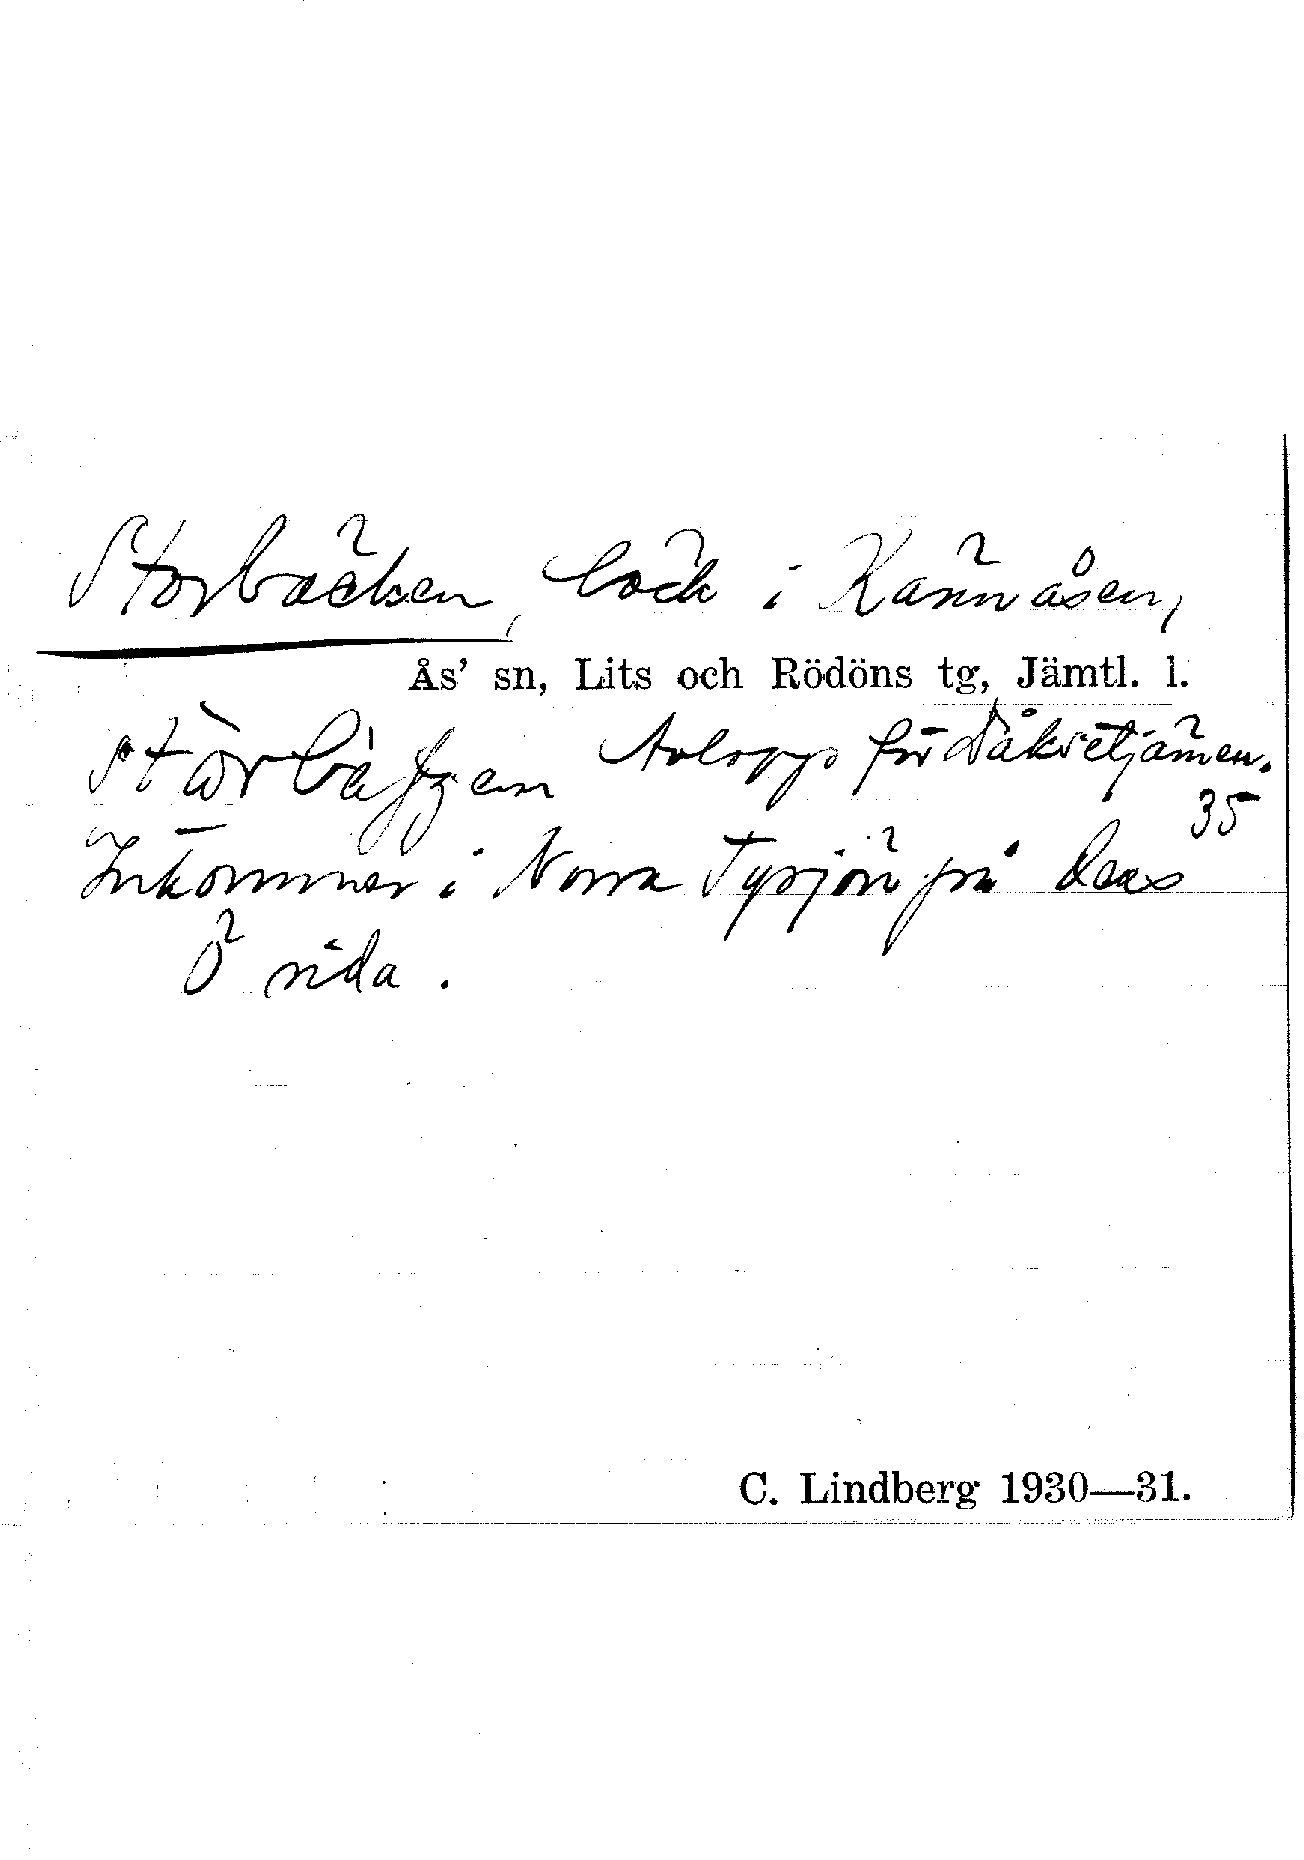 Storbäcken, bäck i Kännåsen,
Ås' sn, Lits och Rödöns tg, Jämtl. l.
Avlopp för
35
Inkommer i Norra Tysjön på dess
Ö sida.
C. Lindberg 1930—31.